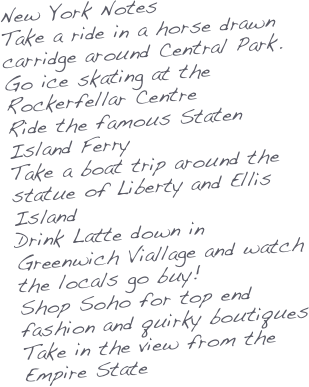 New York Notes
Take a ride in a horse drawn
carridge around Central Park.
Go ice skating at the
Rockerfellar Centre
Ride the famous Staten
Island Ferry
Take a boat trip around the
statue of Liberty and Ellis
Island
Drink Latte down in
Greenwich Viallage and watch
the locals go buy!
Shop Soho for top end
fashion and quirky boutiques
Take in the view from the
Empire State